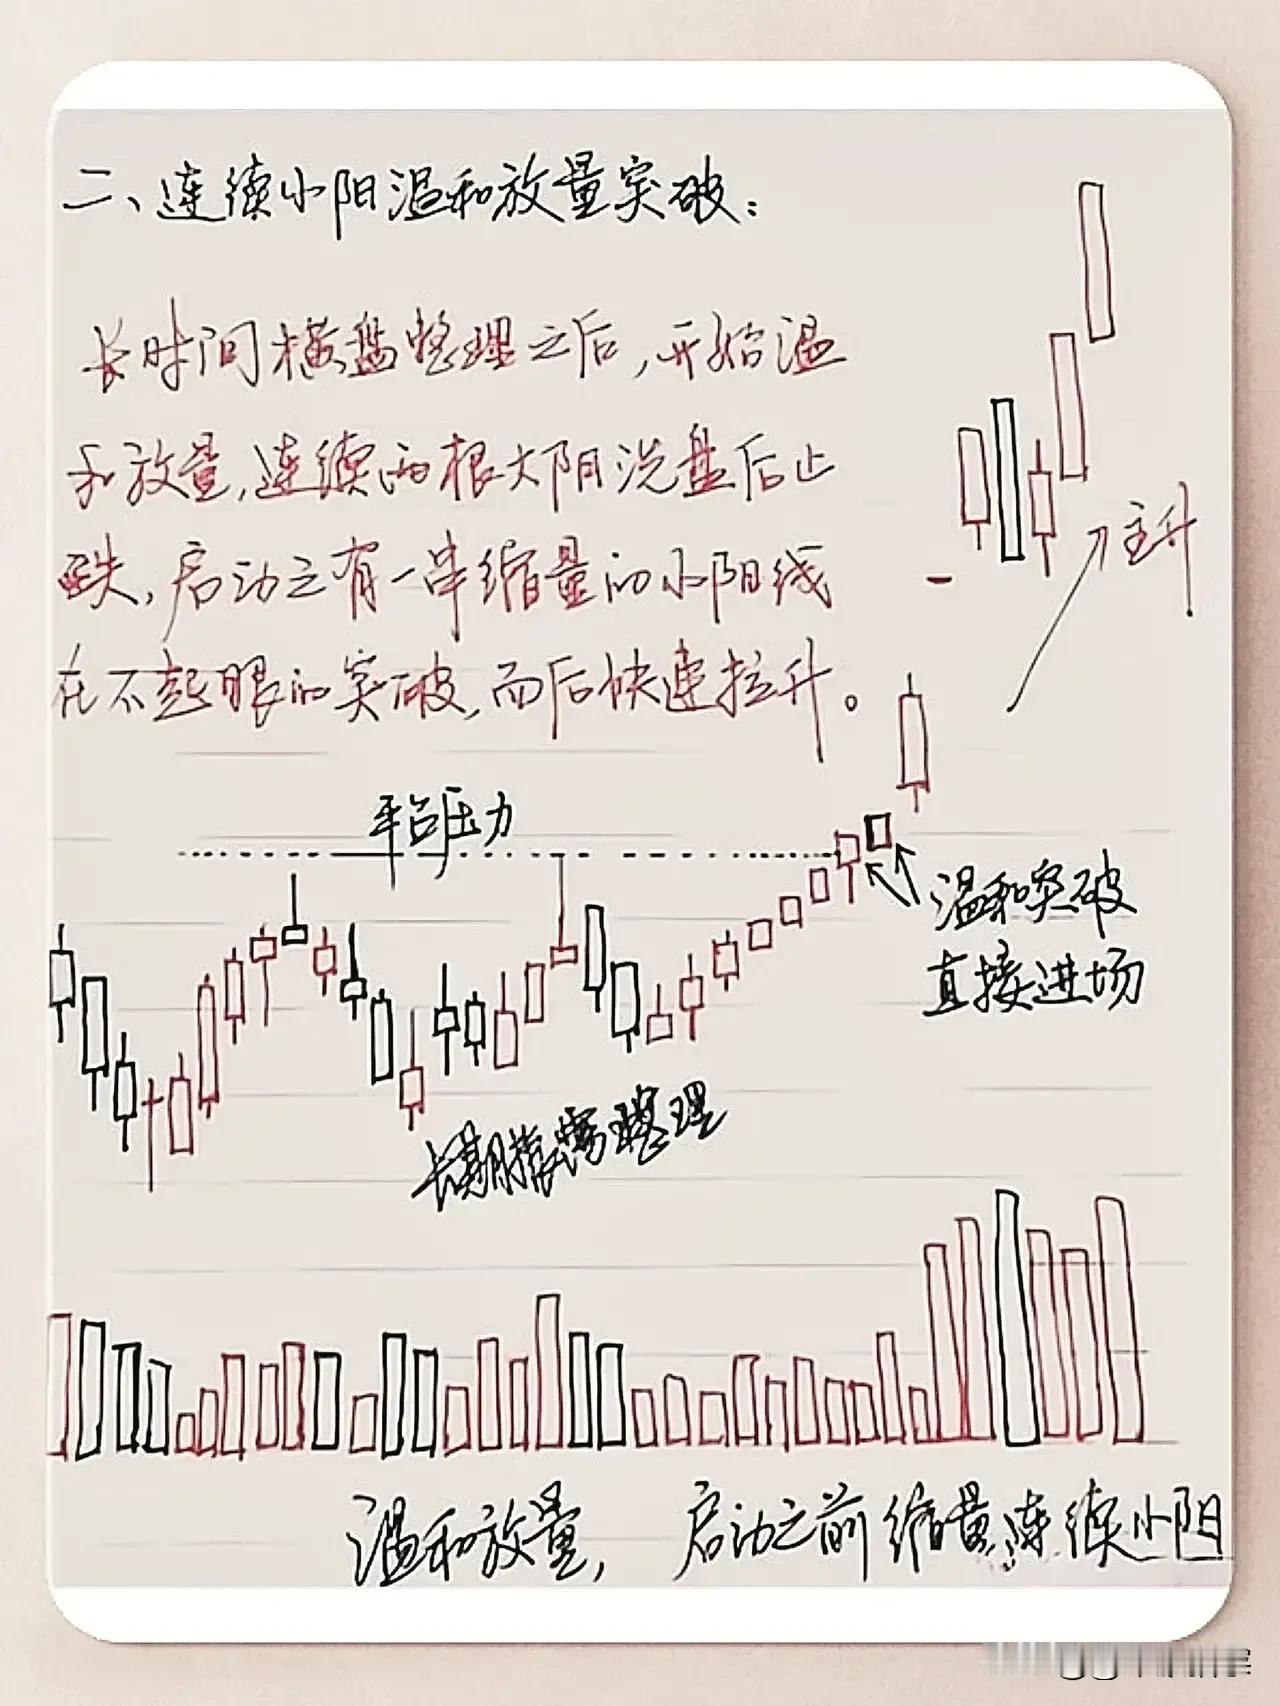 二、连续小阳温和放量突破：
长时间横盘整理之后，开始温
和放量，连续两根大阴洗盘后止
跌，启动之有一串缩量的小阳线
在不起眼的突破，而后快速拉升。
主升
平台压力
温和突破
直接进场
长期横盘整理
温和放量， 启动之前缩量连续小阳